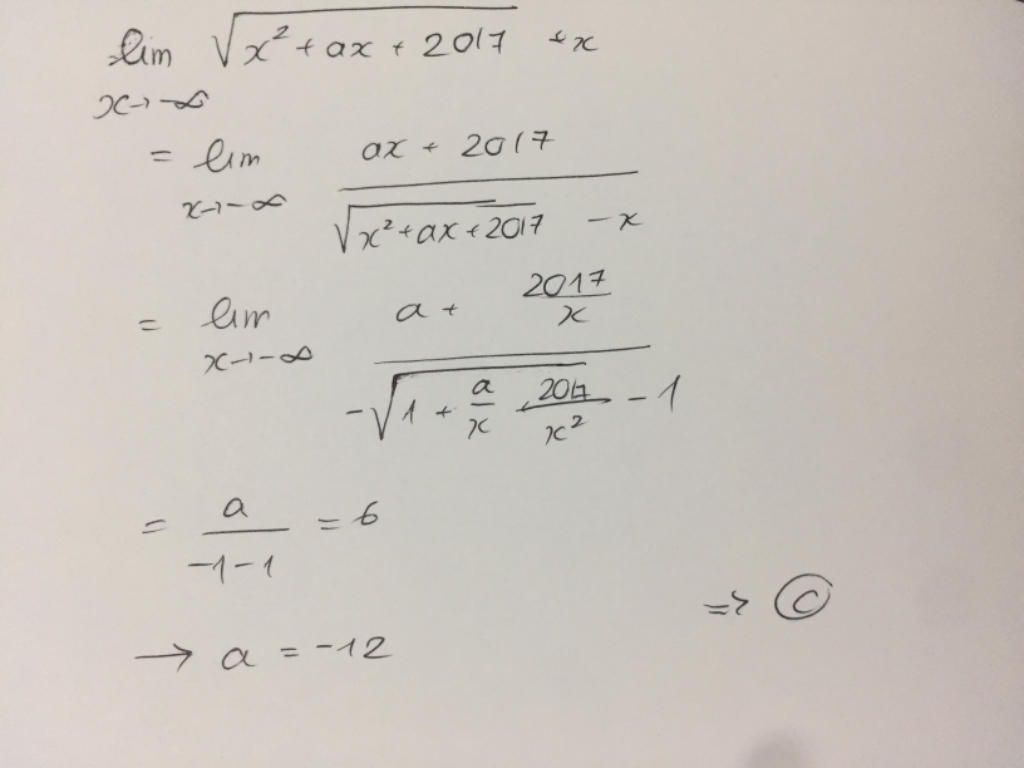 lim √(x² + ax + 2017) + x
x→-∞
= lim (ax + 2017)/(√(x² + ax + 2017) - x)
x→-∞
= lim (a + 2017/x)/(-√(1 + a/x + 2017/x²) - 1)
x→-∞
= a/(-1-1) = 6
=> Ⓒ
→ a = -12